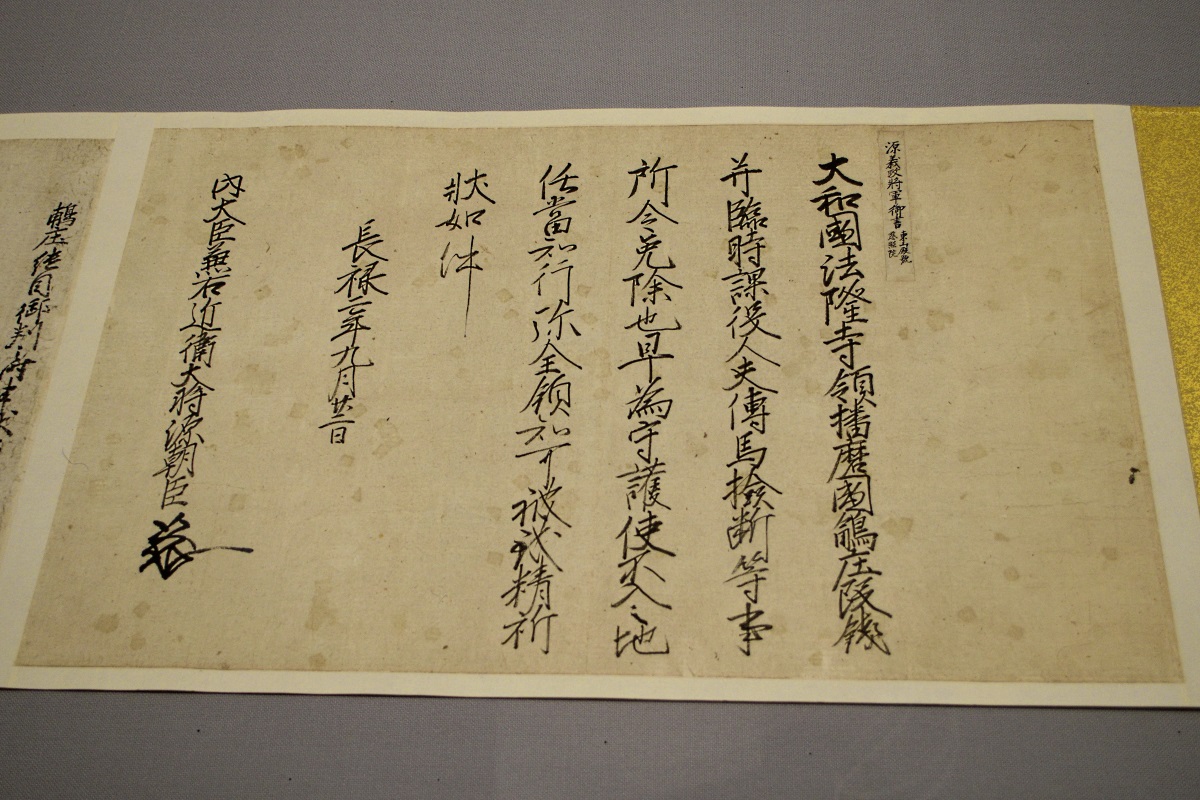 源義政將軍御書
大和國法隆寺領播磨國鵤庄段錢
并臨時課役人夫傳馬撿断等事
所令免除也早為守護使不入之地
任當知行弥全領知可被致精祈
状如件
長禄三年九月廿二日
内大臣兼右近衛大將源朝臣
鵤庄